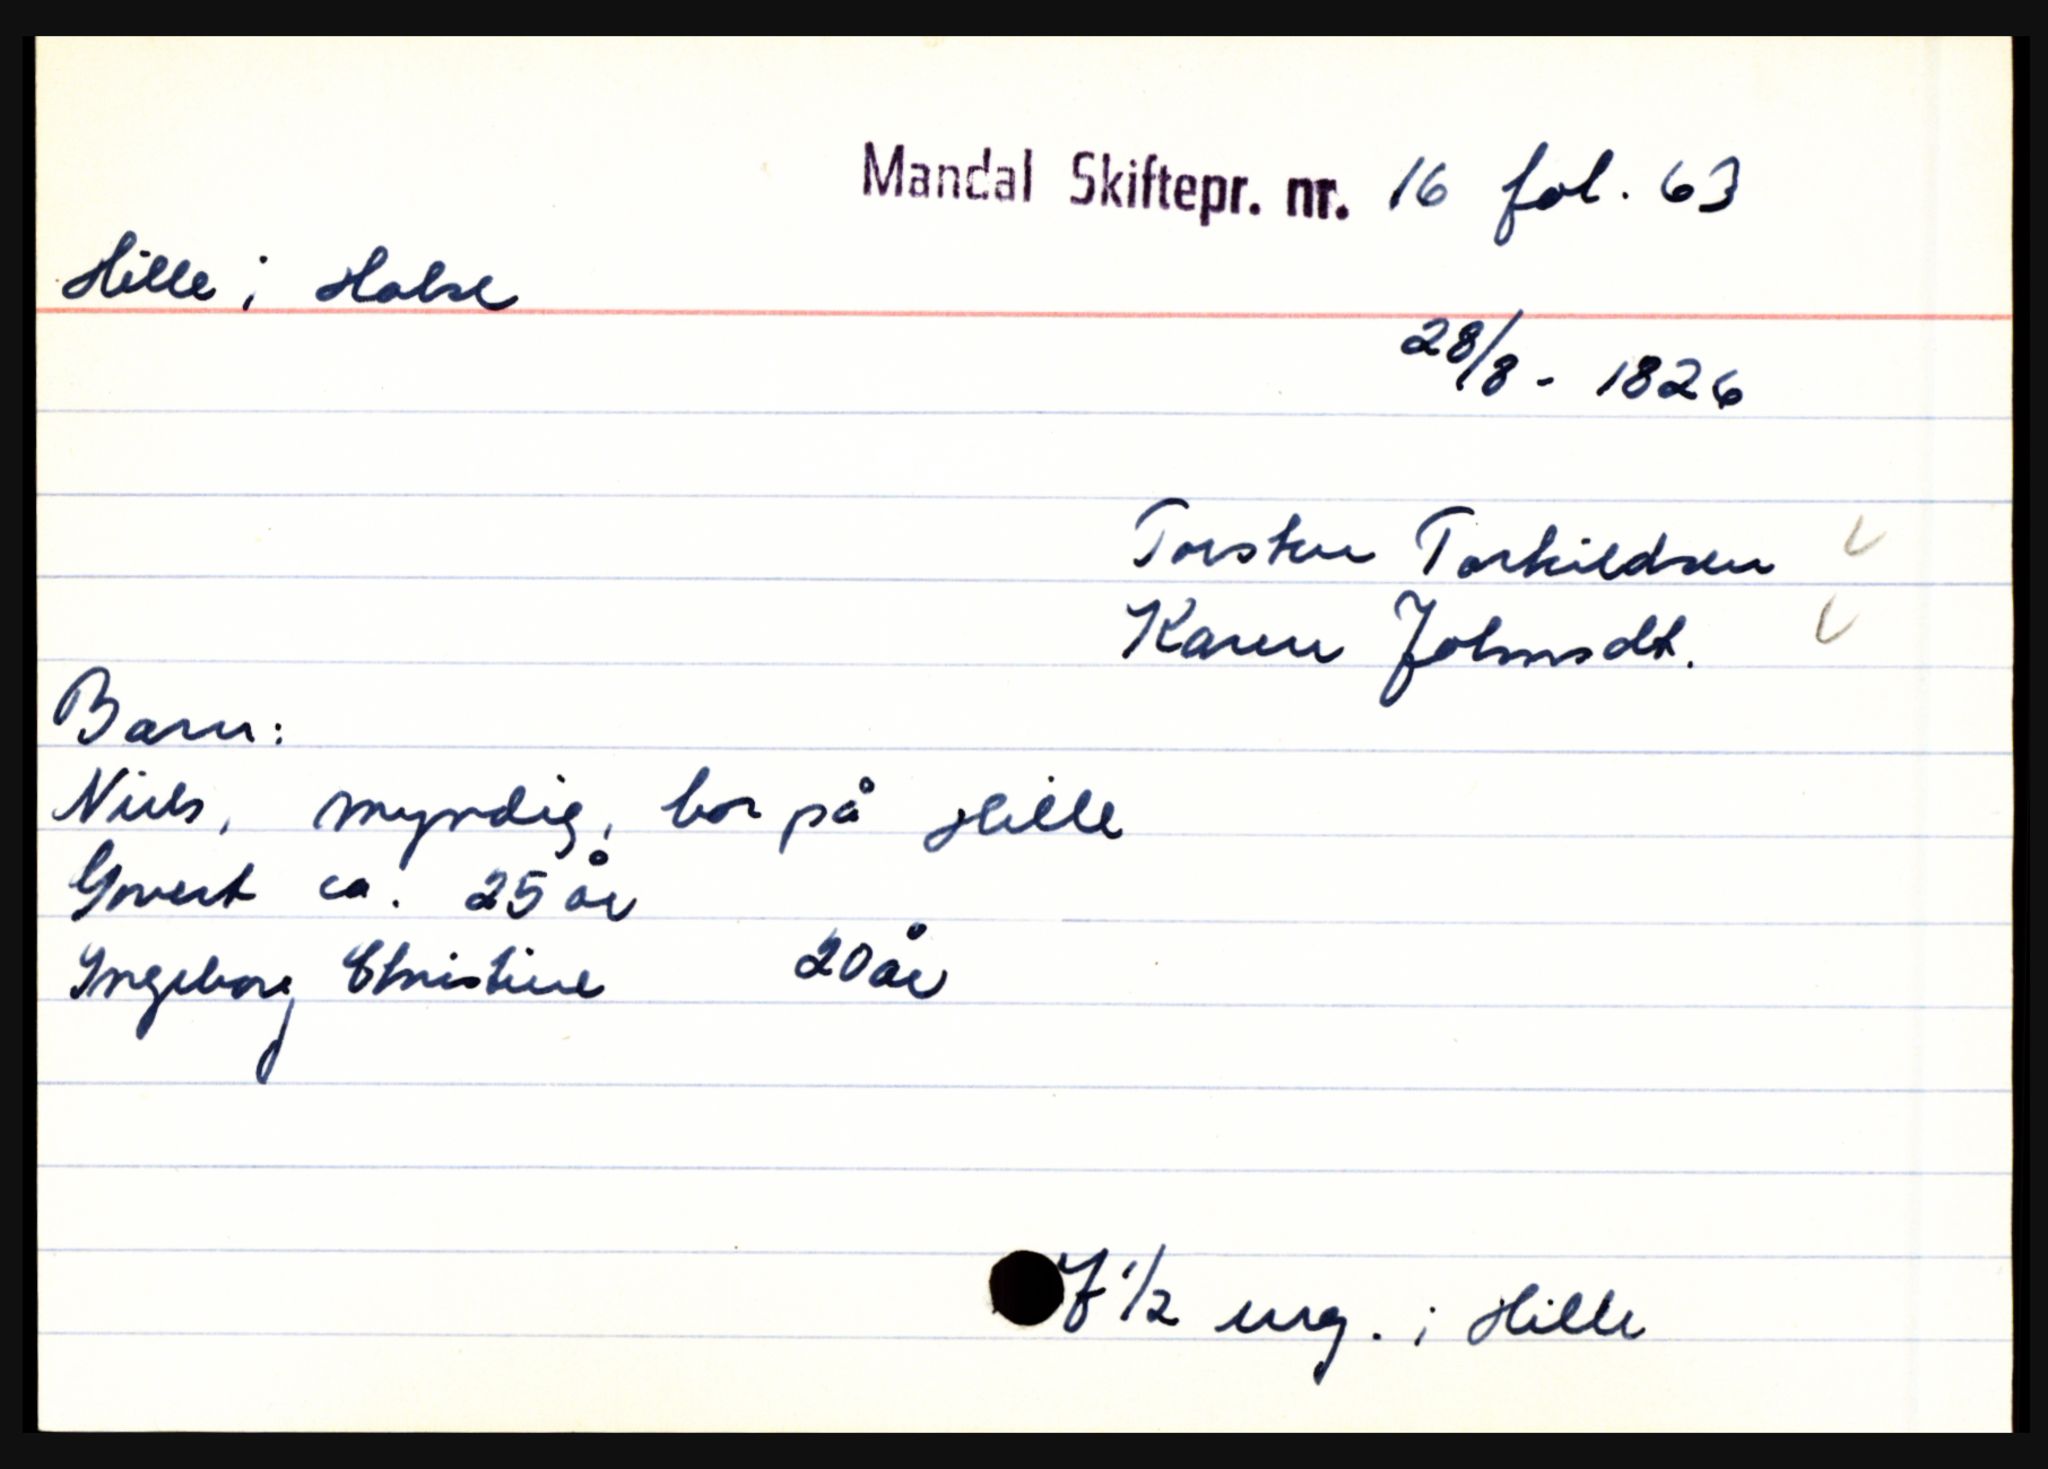 Mandal Skiftepr. nr. 16 fol. 63
Hille i Halse
28/8 - 1826
Torsten Torkildsen
Karen Johnsdt.
Barn:
Niels, myndig, bor på Hille
Govert ca. 25 år
Ingeborg Christine 20 år
7 1/2 eng. i Hille